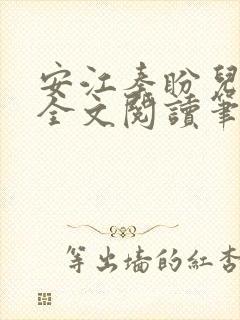 安江秦盼兒
全文閱讀筆
等出墙的紅杏